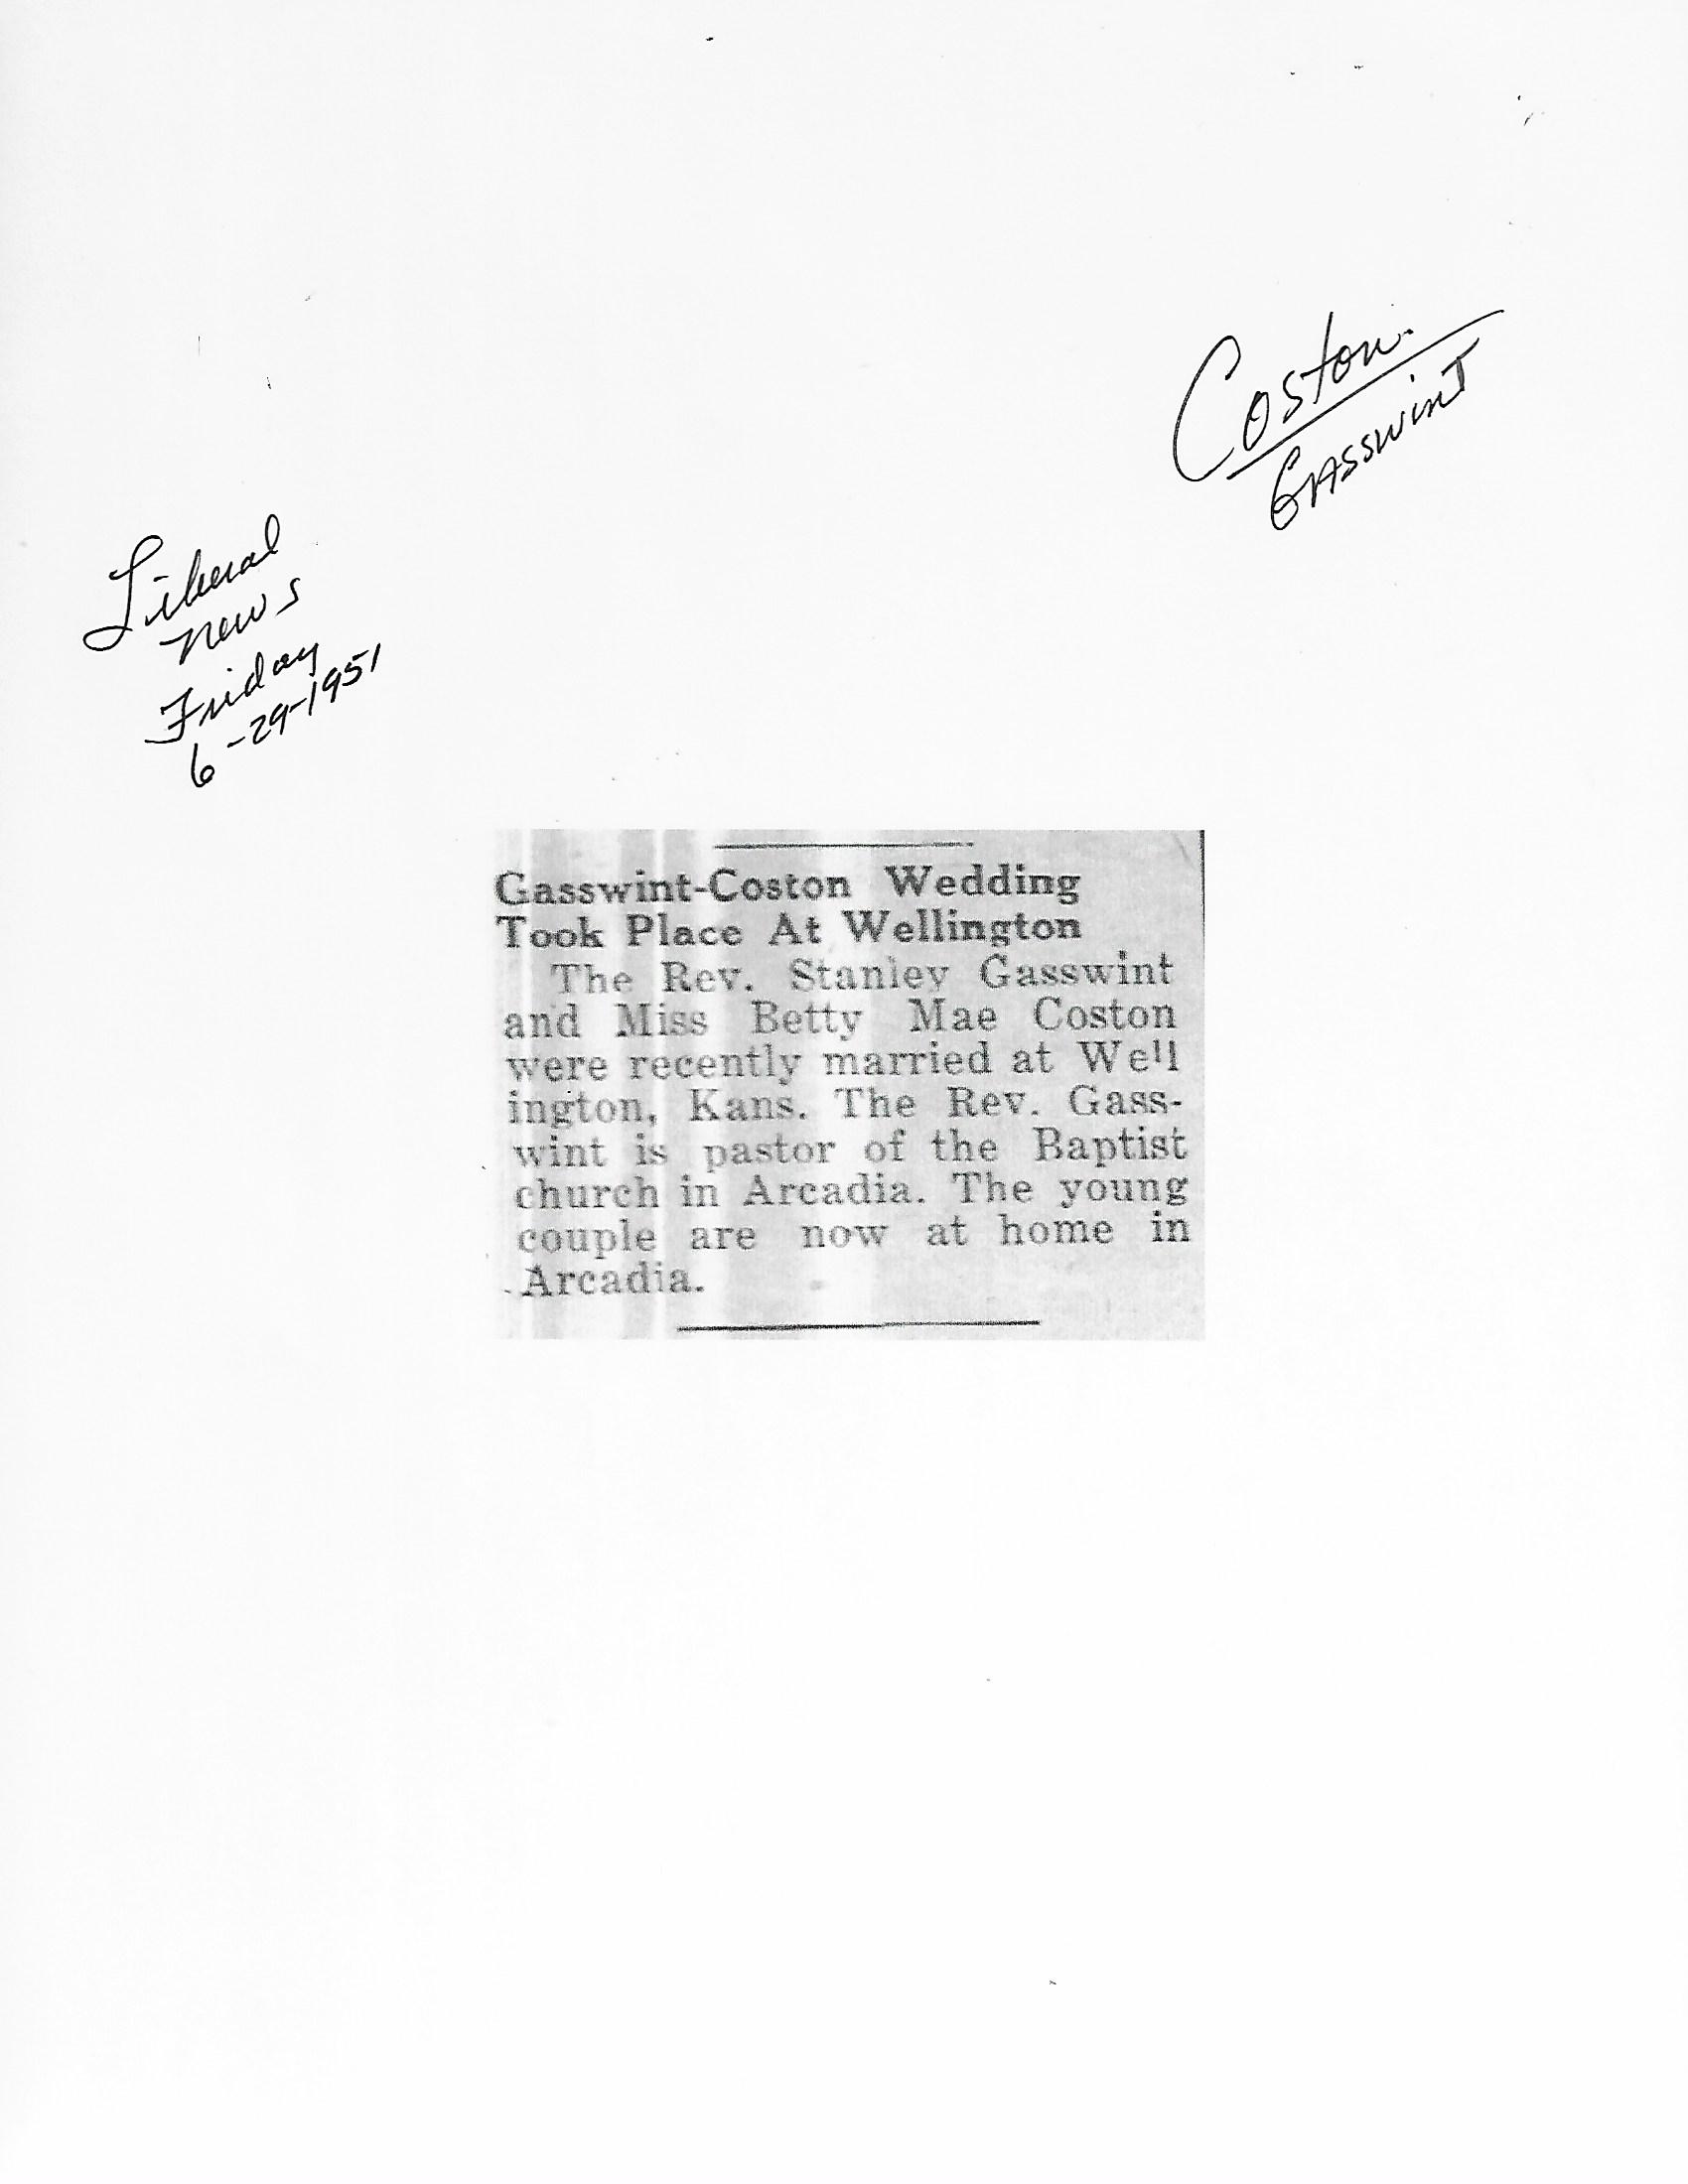 Coston
Gasswint
Liberal
News
Friday
6-29-1951
Gasswint-Coston Wedding
Took Place At Wellington
The Rev. Stanley Gasswint
and Miss Betty Mae Coston
were recently married at Well
ington, Kans. The Rev. Gass-
wint is pastor of the Baptist
church in Arcadia. The young
couple are now at home in
Arcadia.